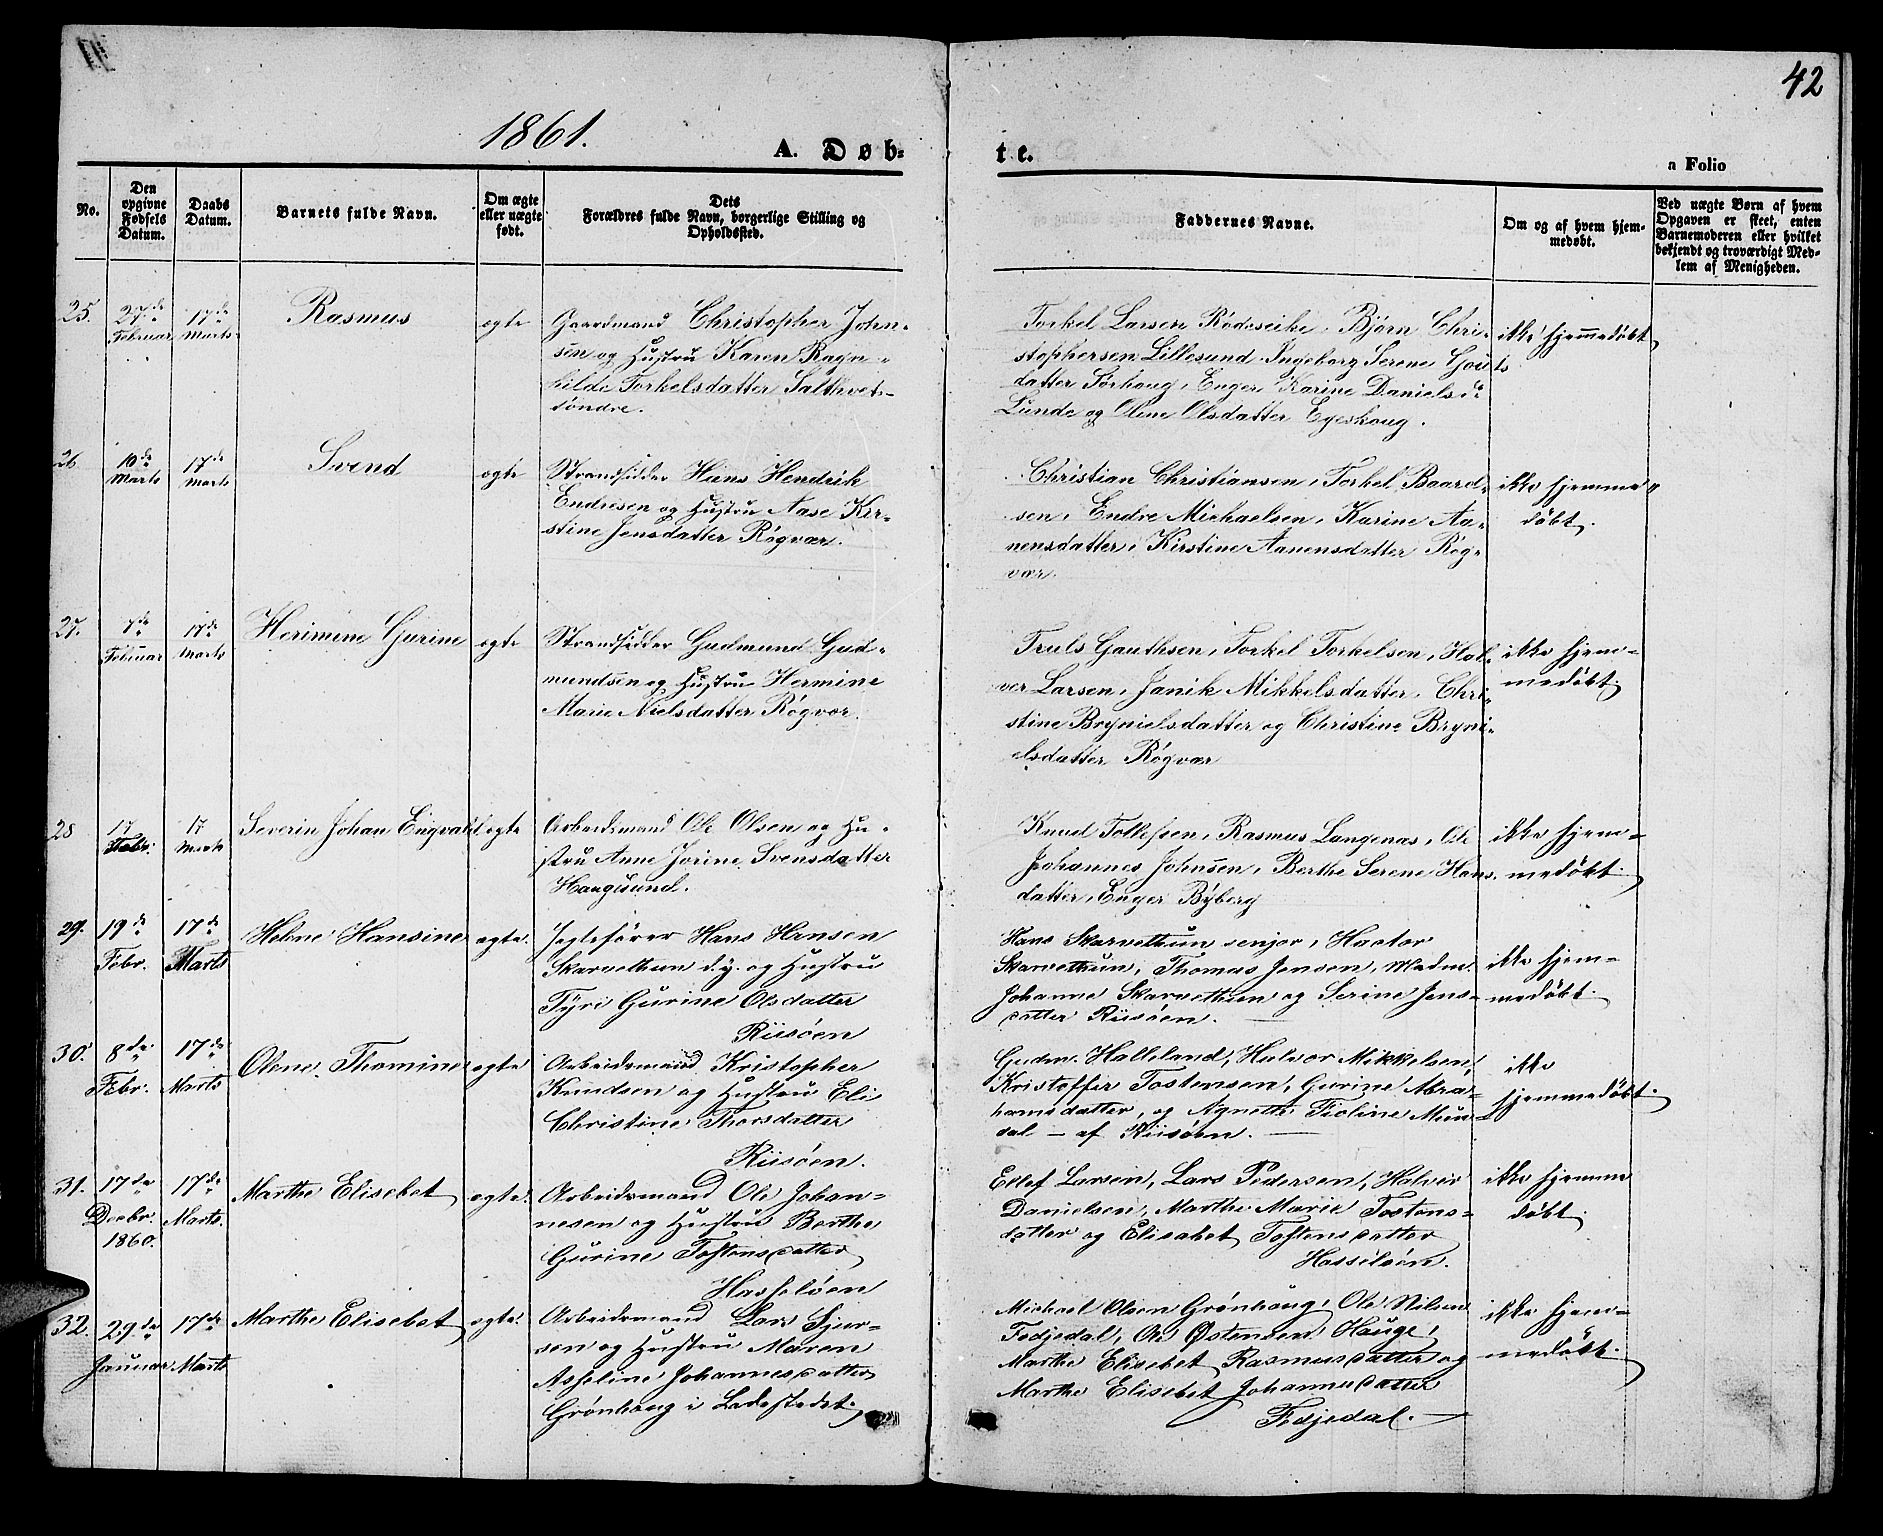 42
1861.
A. Døb-
te.
a Folio
No.
Den opgivne Fødsels Datum.
Daabs Datum.
Barnets fulde Navn.
Om ægte eller uægte født.
Dets Forældres fulde Navn, borgerlige Stilling og Opholdssted.
Faddernes Navne.
Om og af hvem hjem- medøbt.
Ved uægte Børn af hvem Opgaven er skeet, enten Barnemoderen eller hvilket bekjendt og troværdigt Med- lem af Menigheden.
25. 27de Februar 17de Marts Rasmus ægte
Gaardmand Christopher John-
sen og Hustru Karen Ragn-
hilde Torkelsdatter Salthvet
søndre.
Torkel Larsen Rødeseike, Bjørn Chri-
stophersen Lillesund, Ingeborg Serene Gouts
datter Sørhoug, Enger Karine Danielsd.
Lunde og Olene Olsdatter Egeskoug.
ikke hjemmedøbt
26 10de Marts 17de Marts Svend ægte
Strandsidder Hans Hendrik
Endresen og Hustru Aase Kir-
stine Jensdatter Røgvær.
Christian Christiansen, Torkel Baard-
sen, Endre Michaelsen, Karine Aa-
nensdatter, Kirstine Aanensdatter Røg-
vær.
ikke hjemme-
døbt.
27. 7de Februar 17de Marts Herimine Gurine ægte
Strandsidder Gudmund Gud-
mundsen og Hustru Hermine
Marie Nielsdatter Røgvær.
Truls Gauthsen, Torkel Torkelsen, Hal-
ver Larsen, Janik Mikkelsdatter, Chri-
stine Brynielsdatter og Christine Bryni-
elsdatter Røgvær
ikke hjem-
medøbt.
28 17 Febr. 17 Marts Severin Johan Engvald ægte
Arbeidsmand Ole Olsen og Hu-
stru Anne Jorine Svensdatter
Haugesund.
Knud Tollefsen, Rasmus Langenæs, Ole
Johannes Johnsen, Berthe Serene Hans-
datter, Enger Byberg
ikke hjem-
medøbt.
29. 19de Febr. 17de Marts Helene Hansine ægte.
Jagtefører Hans Hansen
Skarvethun d.y. og Hustru
Tyri Gurine Olsdatter
Riisøen
Hans Skarvethun senjor, Hactor
Skarvethun, Thomas Jensen, Madm.
Johanne Skarvethun og Serine Jens-
datter Riisøen.
ikke hjem-
medøbt.
30. 8de Febr. 17de Marts Olene Thomine ægte
Arbeidsmand Kristopher
Knudsen og Hustru Eli
Christine Thorsdatter
Riisøen.
Gudm. Halleland, Halvor Mikkelsen,
Kristoffer Tostensen, Gurine Abra-
hamsdatter, og Agnethe Tioline Mun-
dal — af Riisøen.
ikke
hjemmedøbt.
31. 17de Decbr. 1860. 17de Marts. Marthe Elisebet ægte.
Arbeidsmand Ole Johan-
nesen og Hustru Berthe
Gurine Tostensdatter
Hasseløen
Ellef Larsen, Lars Pedersen, Halvor
Danielsen, Marthe Marie Tostens-
datter og Elisabet Tostensdatter
Hasseløen.
ikke hjemme
døbt.
32. 29de Januar 17de Marts Marthe Elisebet ægte.
Arbeidsmand Lars Sjur-
sen og Hustru Maren
Asseline Johannesdatter
Grønhaug i Ladestedet.
Michael Olsen Grønhaug, Ole Nilsen
Fodjedal, Ole Østensen Hauge,
Marthe Elisebet Rasmusdatter og
Marthe Elisebet Johannesdatter
Fodjedal. —
ikke hjem-
medøbt.